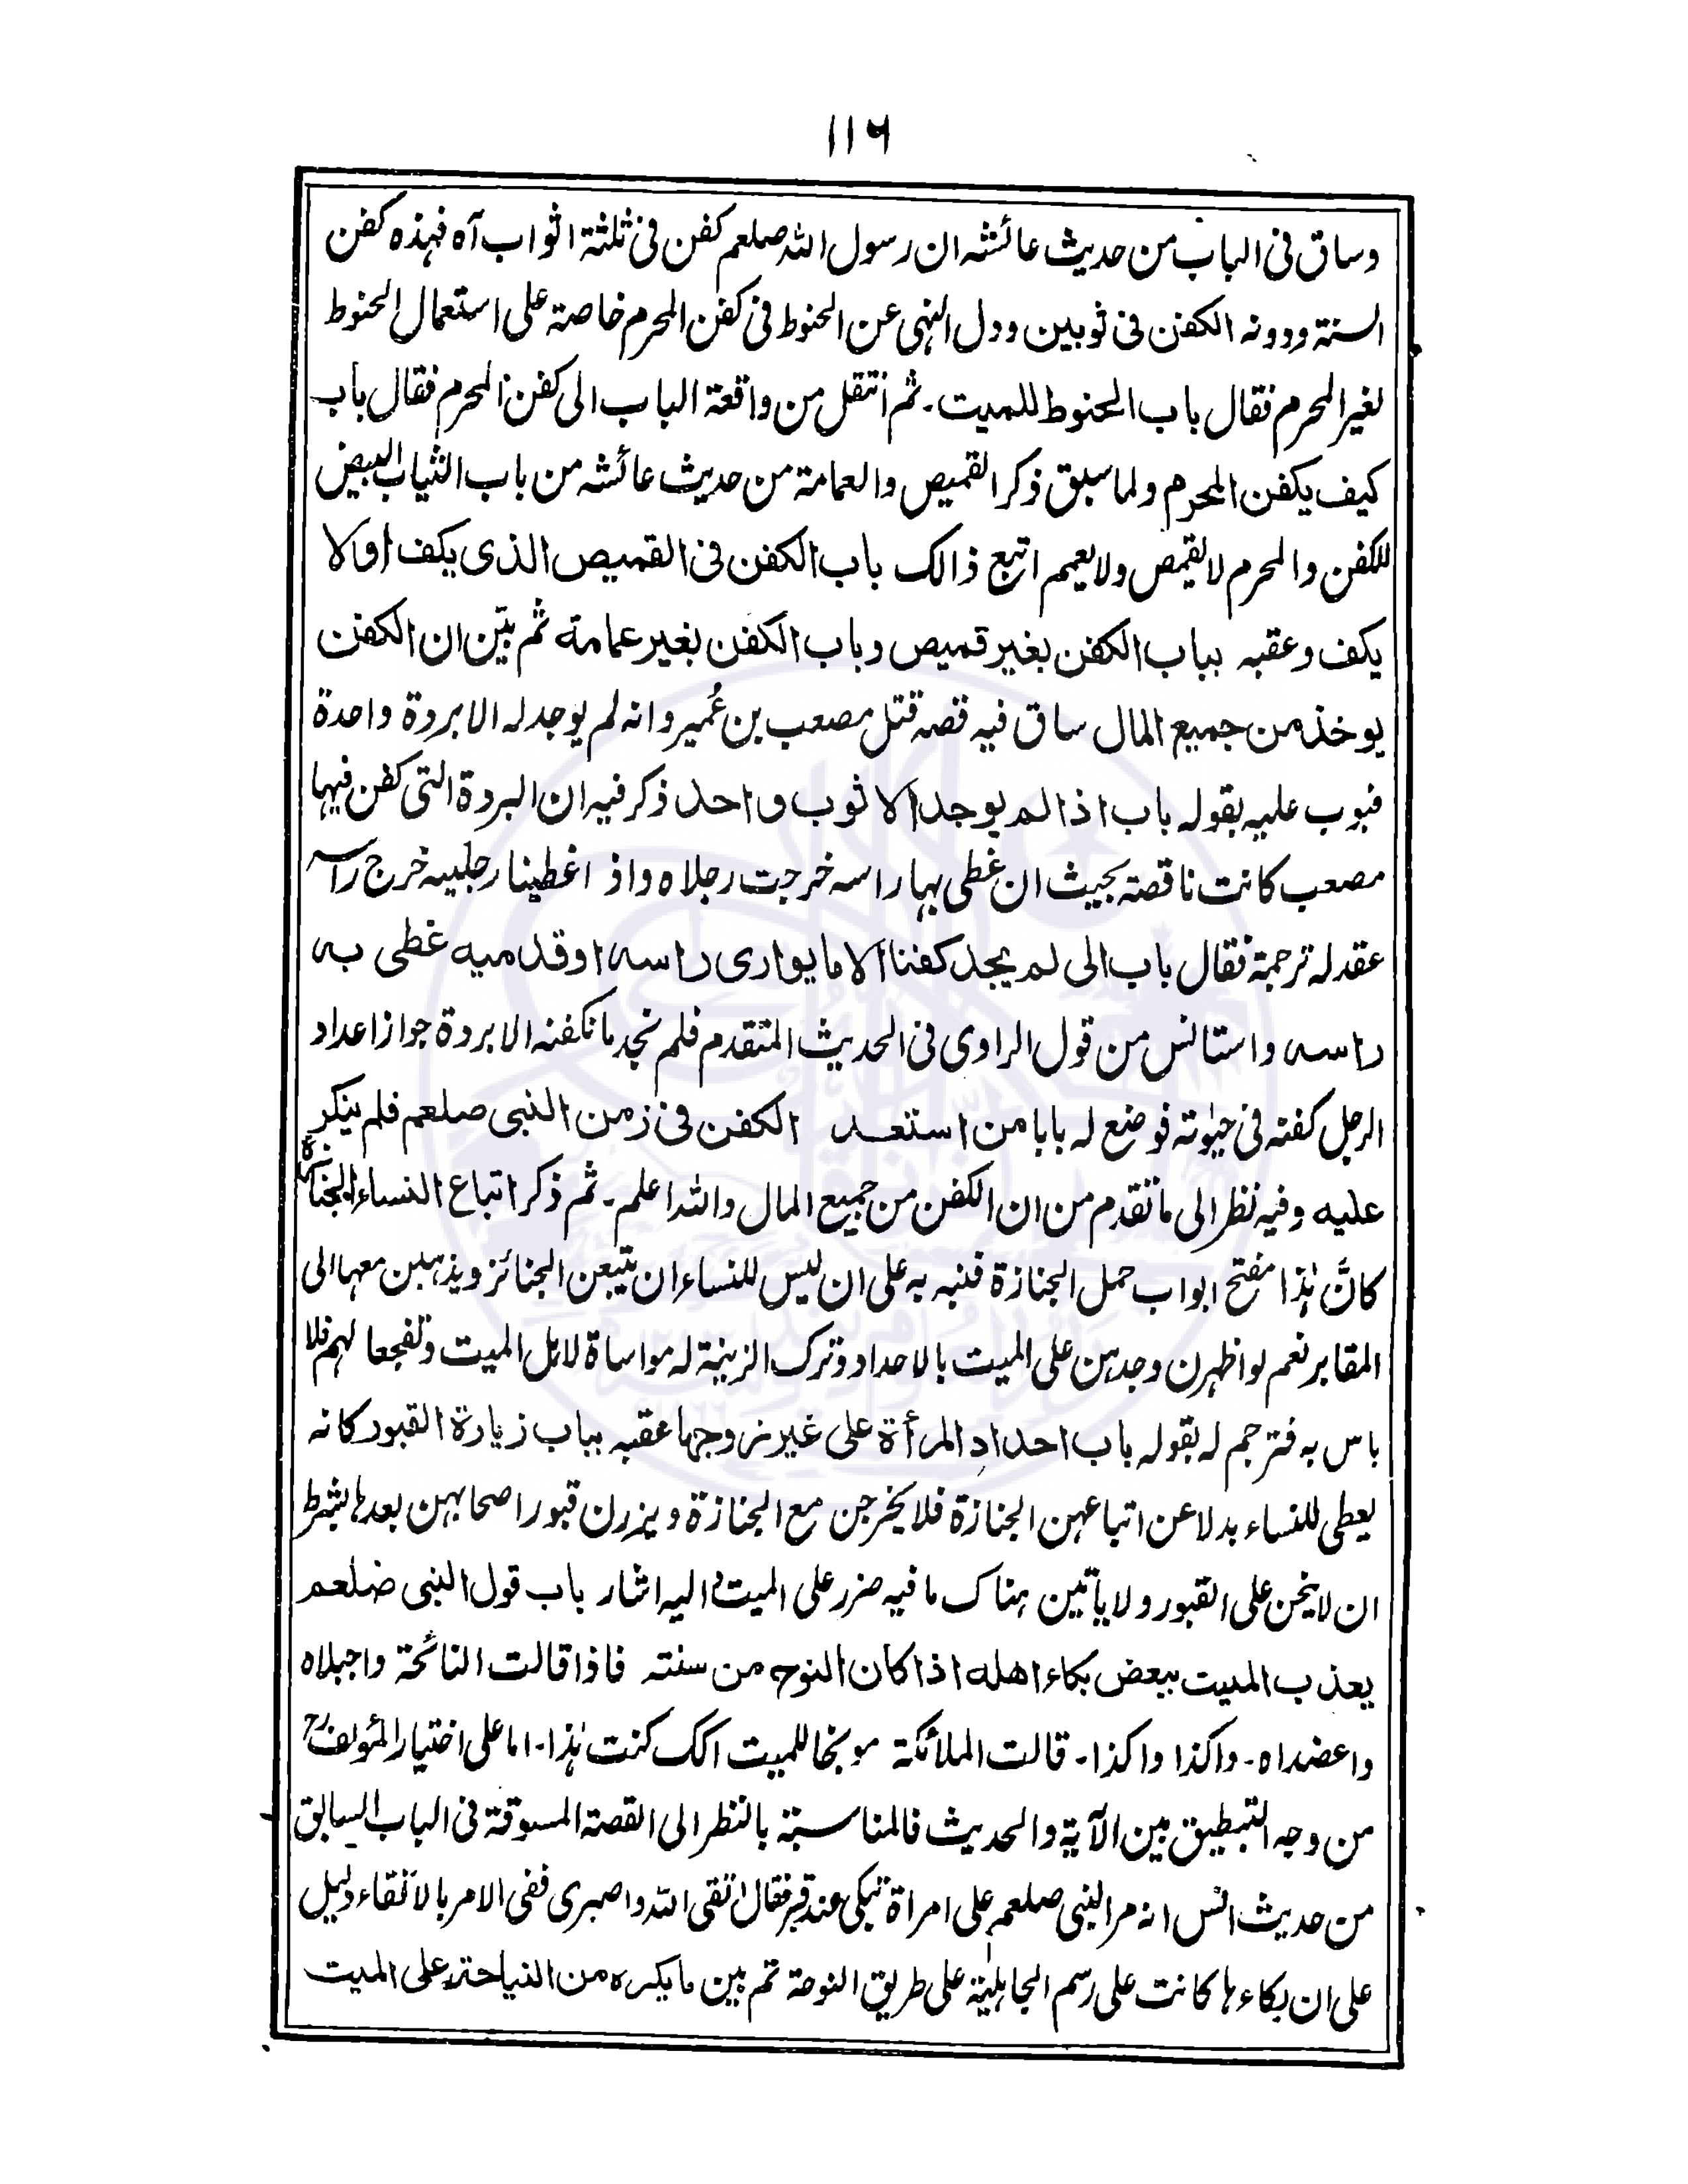 ١١٦
وساق فی الباب من حدیث عائشہ ان رسول اللہ صلعم کفن فی ثلثة اثواب آہ فہذہ کفن
السنة ودونہ الکفن فی ثوبین ودل النہی عن الحنوط فی کفن المحرم خاصة علی استعمال الحنوط
لغیر المحرم فقال باب الحنوط للمیت۔ ثم انتقل من واقعة الباب الی کفن المحرم فقال باب
کیف یکفن المحرم ولما سبق ذکر القمیص والعمامة من حدیث عائشہ من باب الثیاب البیض
للکفن والمحرم لا یقمص ولا یعمم اتبع ذالک باب الکفن فی القمیص الذی یکف او لا
یکف وعقبہ بباب الکفن بغیر قمیص وباب الکفن بغیر عمامة ثم بیّن ان الکفن
یوخذ من جمیع المال ساق فیہ قصہ قتل مصعب بن عُمیر وانہ لم یوجد لہ الا بردة واحدة
فبوب علیہ بقولہ باب اذا لم یوجد الا ثوب واحد ذکر فیہ ان البردة التی کفن فیہا
مصعب کانت ناقصتہ بحیث ان غطی بہا راسہ خرجت رجلاہ واذ اغطینا رجلیہ خرج راسہ
عقد لہ ترجمة فقال باب الی لم یجد کفنا الا ما یواری راسہ او قدمیہ غطی بہ
راسہ واستانس من قول الراوی فی الحدیث المتقدم فلم نجد ما نکفنہ الا بردة جواز اعداد
الرجل کفنہ فی حیٰوتہ فوضع لہ بابا من استعد الکفن فی زمن النبی صلعم فلم ینکر
علیہ وفیہ نظر الی ما تقدم من ان الکفن من جمیع المال واللہ اعلم۔ ثم ذکر اتباع النساء الجنازة
کانَّ ہٰذا مفتح ابواب حمل الجنازة فنبہ بہ علی ان لیس للنساء ان یتبعن الجنائز ویذہبن معہا الی
المقابر نعم لو اظہرن وجدہن علی المیت بالاحداد وترک الزینة لہ مواساة لاہل المیت وتفجعا لہم فلا
باس بہ فترجم لہ بقولہ باب احدادِ المرأة علی غیر زوجہا عقبہ بباب زیارة القبور کانہ
یعطی للنساء بدلا عن اتباعہن الجنازة فلا یخرجن مع الجنازة ویزرن قبور اصحابہن بعدہا بشرط
ان لا ینحن علی القبور ولا یأتین ہناک ما فیہ ضرر علی المیت والیہ اشار باب قول النبی صلعم
یعذب المیت ببعض بکاء اھلہ اذا کان النوح من سنتہ فاذا قالت النائحة واجبلاہ
واعضداہ۔ واکذا واکذا۔ قالت الملائکة موبخا للمیت اکک کنت ہٰذا۔ اما علی اختیار المؤلفؒ
من وجہ التبطیق بین الآیة والحدیث فالمناسبتہ بالنظر الی القصة المسوقة فی الباب السابق
من حدیث انس انہ مر النبی صلعم علی امراة تبکی عند قبر فقال اتقی اللہ واصبری ففی الامر بالاتقاء دلیل
علی ان بکاءہا کانت علی رسم الجاہلیة علی طریق النوحة ثم بین ما یکرہ من النیاحتہ علی المیت